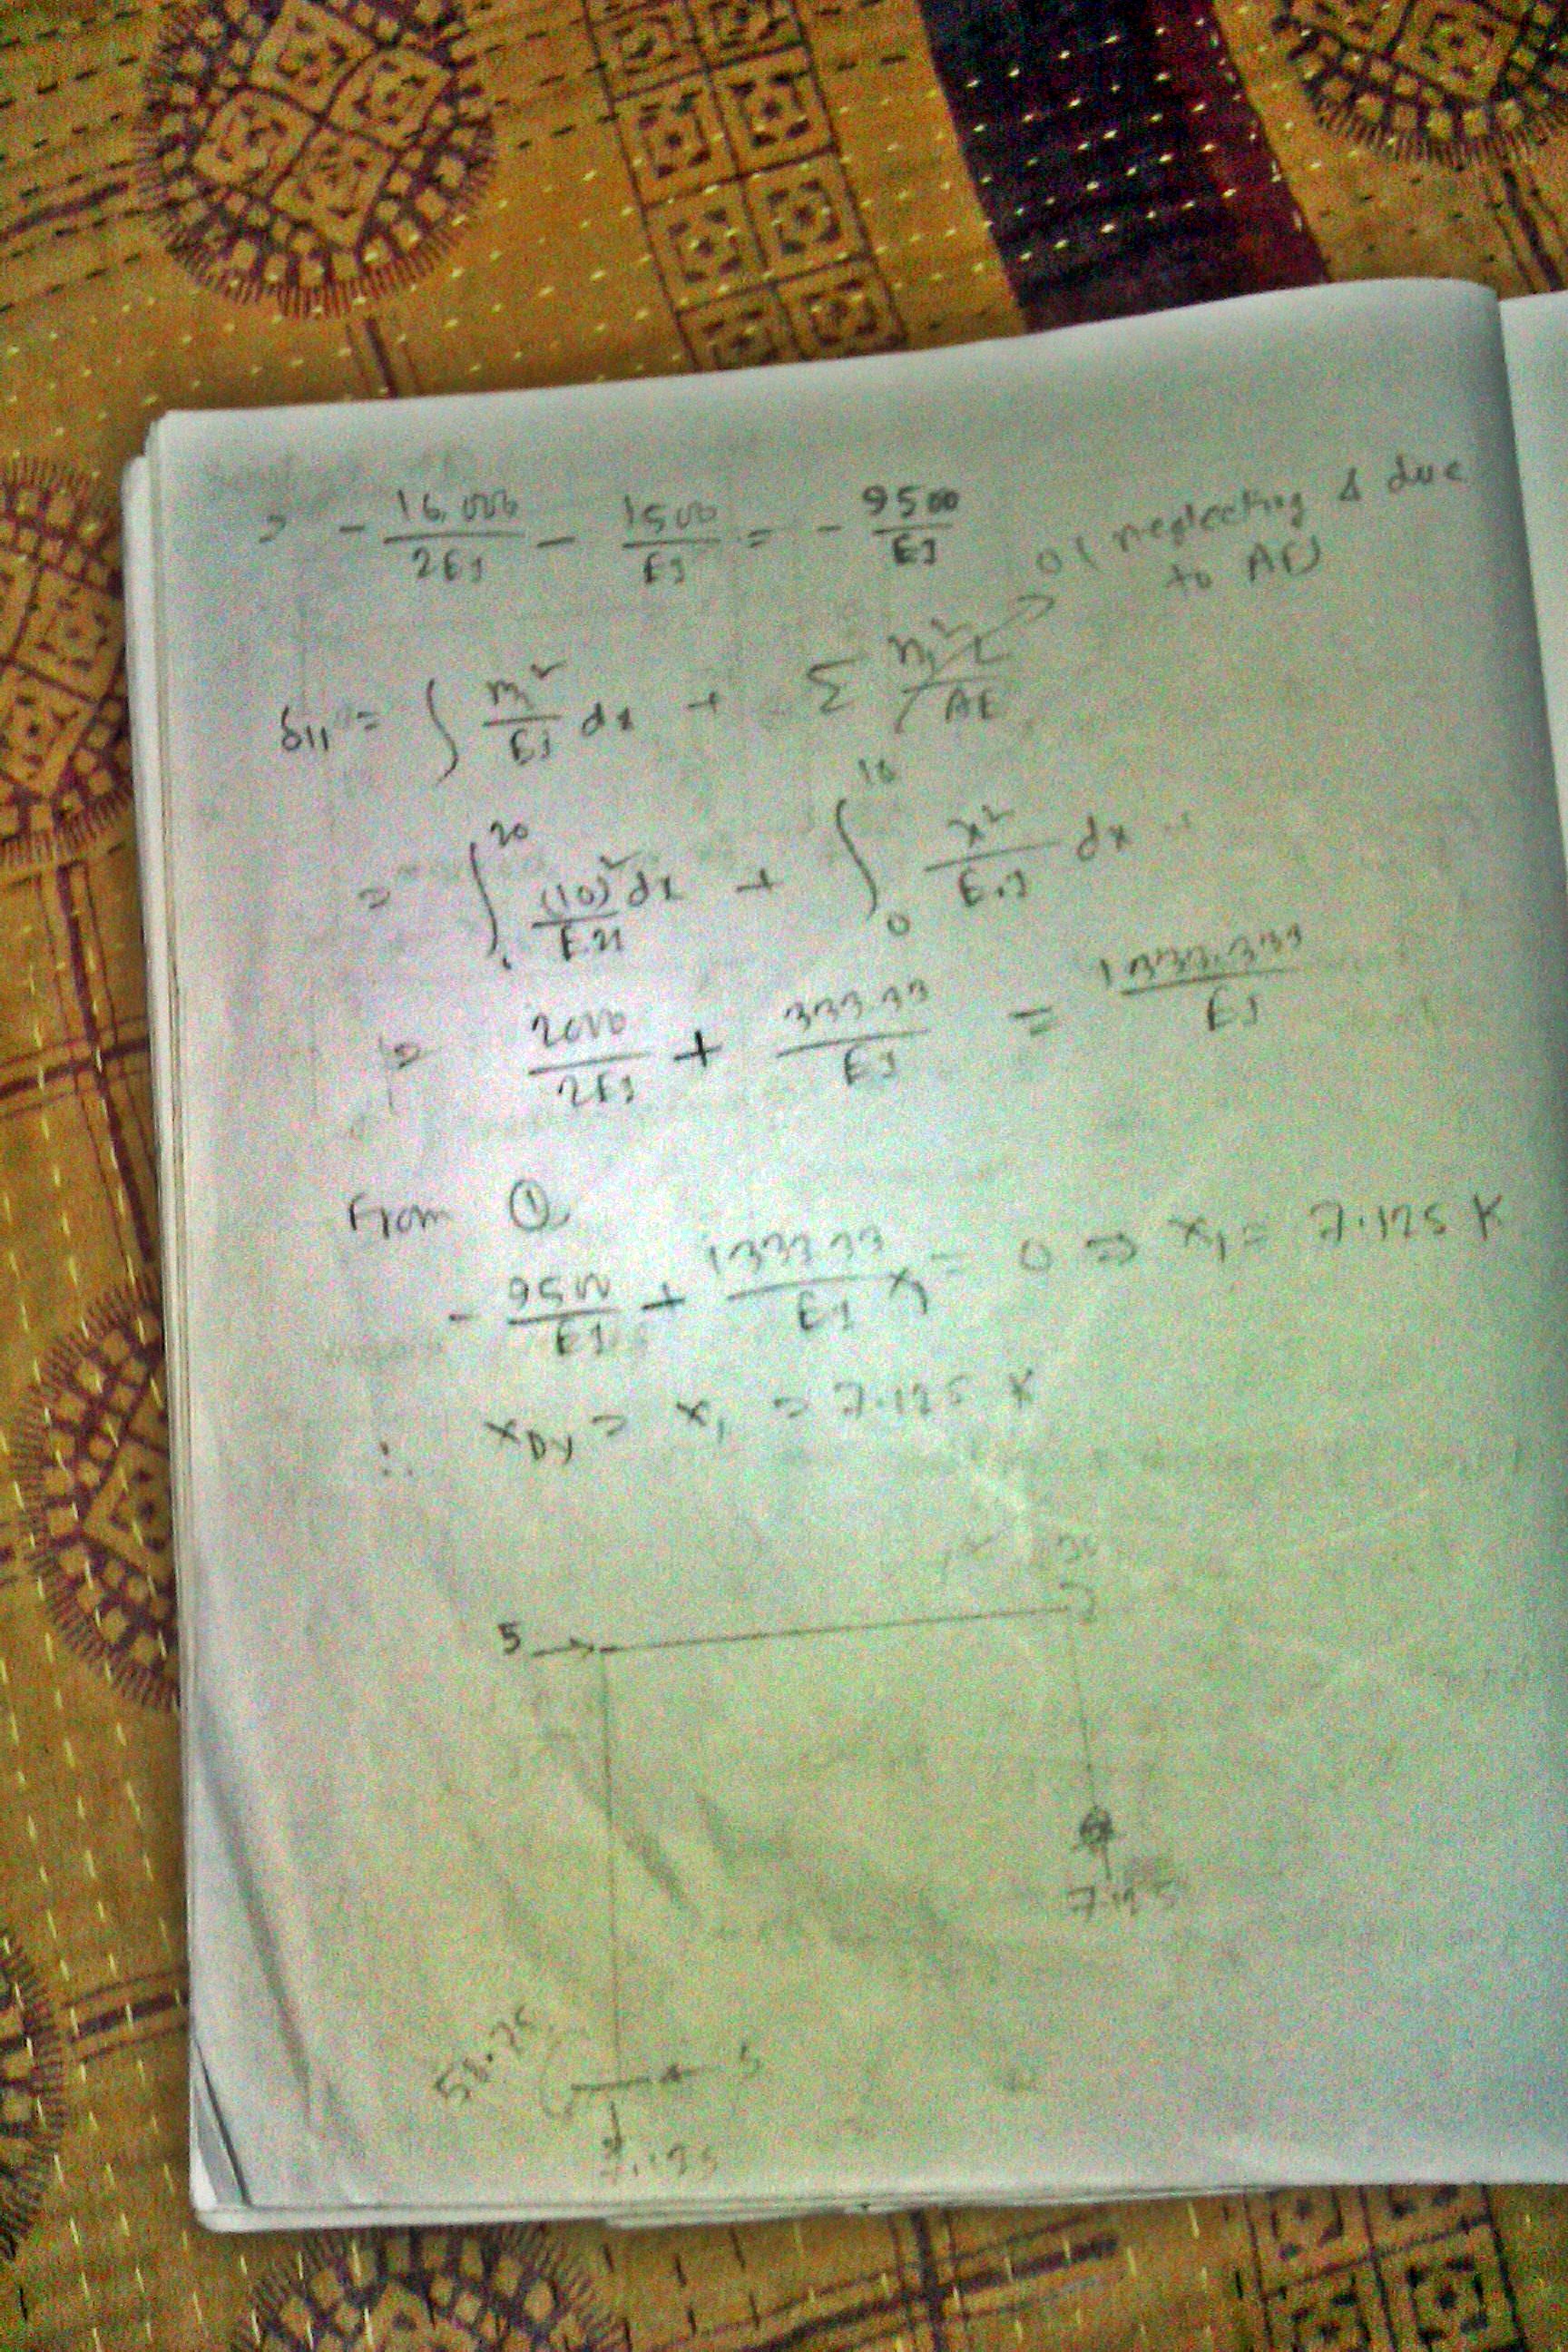 = - 16,000/2EI - 1500/EI = - 9500/EI
0 (neglecting Δ due to AE)
δ11 = ∫ m₁²/EI dx + Σ n₁²L/AE
= ∫₀²⁰ (10)² dx/E2I + ∫₀¹⁰ x²/E.I dx
= 2000/2EI + 333.33/EI = 1333.333/EI
From ①
- 9500/EI + 1333.33/EI x₁ = 0 ⇒ x₁ = 7.125 K
∴ xDy = x₁ = 7.125 K
5
7.125
58.75
5
7.125